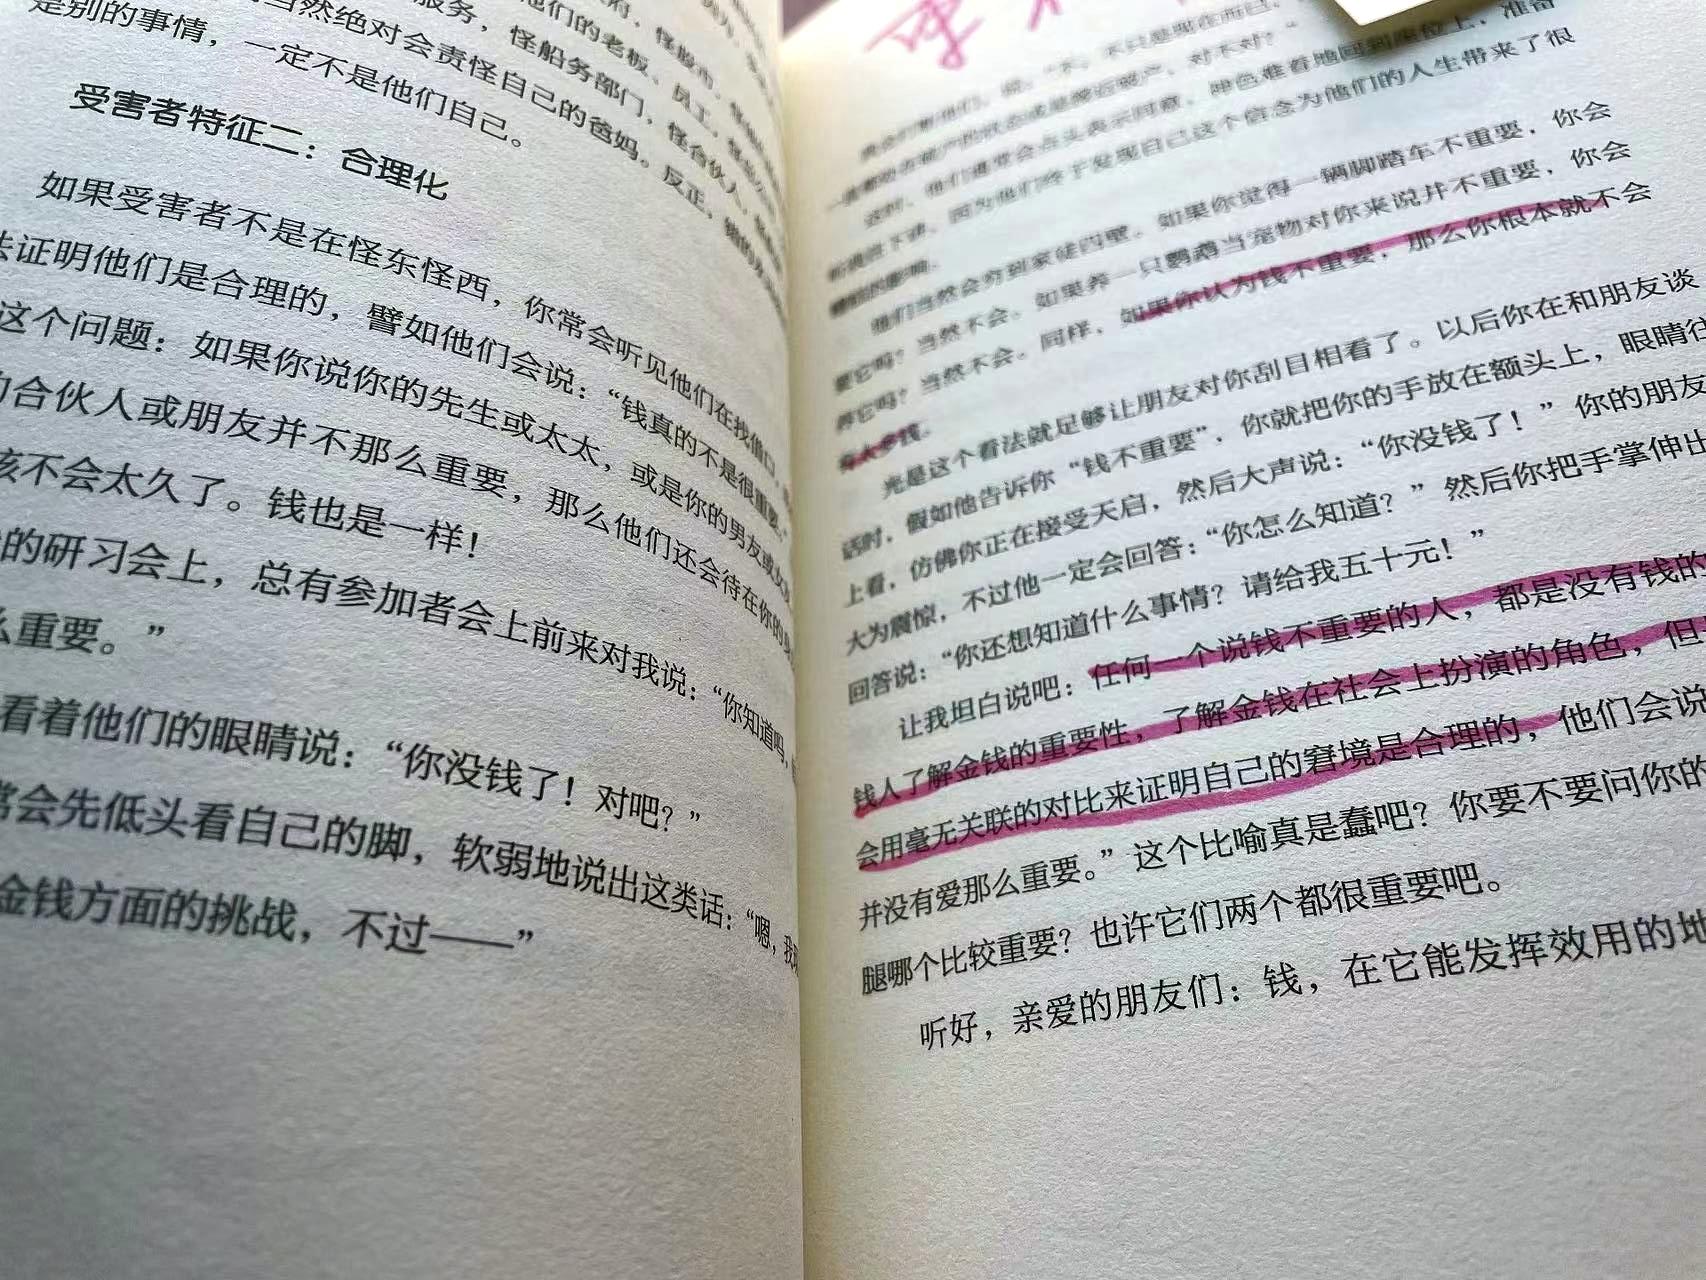 当然绝对会责怪自己的爸妈。反正，
是别的事情，一定不是他们自己。
受害者特征二：合理化
如果受害者不是在怪东怪西，你常会听见他们在找借口，
法证明他们是合理的，譬如他们会说：“钱真的不是很重要。”
这个问题：如果你说你的先生或太太，或是你的男友或女
的合伙人或朋友并不那么重要，那么他们还会待在你的身
该不会太久了。钱也是一样！
的研习会上，总有参加者会上前来对我说：“你知道吗，
么重要。”
看着他们的眼睛说：“你没钱了！对吧？”
常会先低头看自己的脚，软弱地说出这类话：“嗯，我
金钱方面的挑战，不过——”
这时，他们通常会点头表示同意，脸色难看地回到座位上，准备
听我说下去，因为他们终于发现自己这个信念为他们的人生带来了很
糟糕的影响。
他们当然会穷到家徒四壁。如果你觉得一辆脚踏车不重要，你会
要它吗？当然不会。如果养一只鹦鹉当宠物对你来说并不重要，你会
养它吗？当然不会。同样，如果你认为钱不重要，那么你根本就不会
有太多钱。
光是这个看法就足够让朋友对你刮目相看了。以后你在和朋友谈
话时，假如他告诉你“钱不重要”，你就把你的手放在额头上，眼睛往
上看，仿佛你正在接受天启，然后大声说：“你没钱了！”你的朋友
大为震惊，不过他一定会回答：“你怎么知道？”然后你把手掌伸出
回答说：“你还想知道什么事情？请给我五十元！”
让我坦白说吧：任何一个说钱不重要的人，都是没有钱的
钱人了解金钱的重要性，了解金钱在社会上扮演的角色，但
会用毫无关联的对比来证明自己的窘境是合理的，他们会说
并没有爱那么重要。”这个比喻真是蠢吧？你要不要问你的
腿哪个比较重要？也许它们两个都很重要吧。
听好，亲爱的朋友们：钱，在它能发挥效用的地